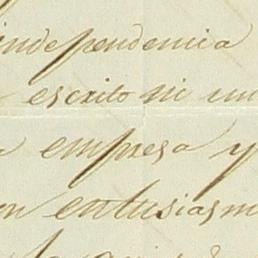 independencia
escrito ni un
a empresa y
on entusiasm